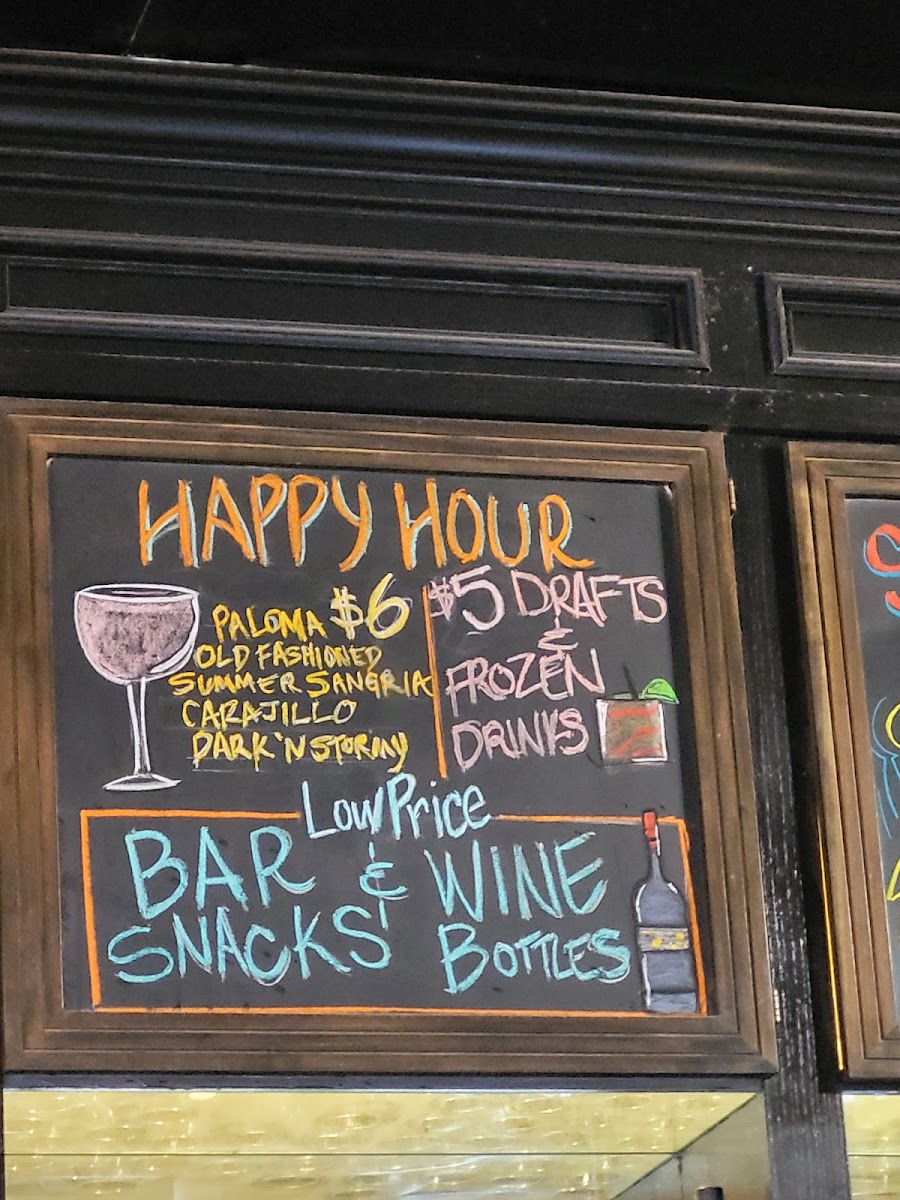 HAPPY HOUR
PALOMA $6
OLD FASHIONED
SUMMER SANGRIA
CARAJILLO
DARK 'N STORMY
$5 DRAFTS
&
FROZEN
DRINKS
Low Price
BAR & WINE
SNACKS BOTTLES